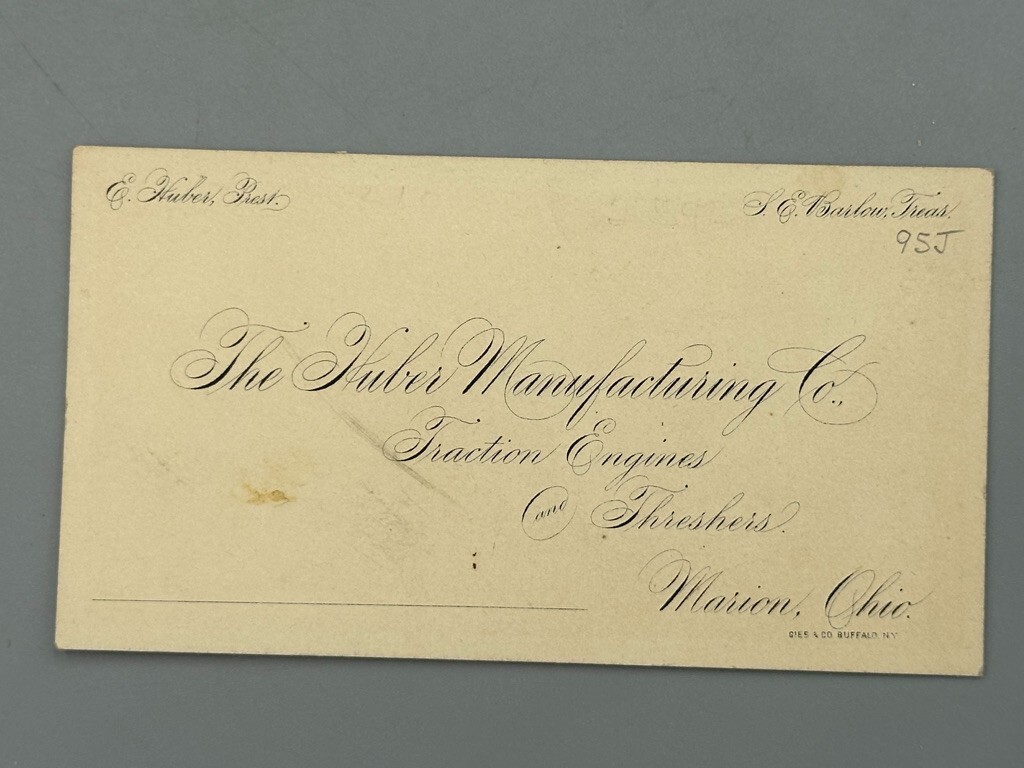 E. Huber, Prest.
S. E. Barlow, Treas.
95J
The Huber Manufacturing Co.,
Traction Engines
and Threshers.
Marion, Ohio.
GIES & CO. BUFFALO, N.Y.